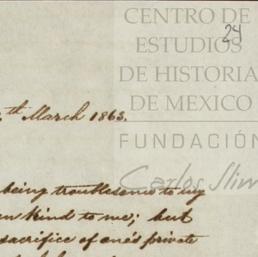 CENTRO DE
ESTUDIOS
DE HISTORIA
DE MEXICO
24
th March 1863.
FUNDACIÓN
Carlos Slim
being troublesome to my
kind to me; but
sacrifice of one's private